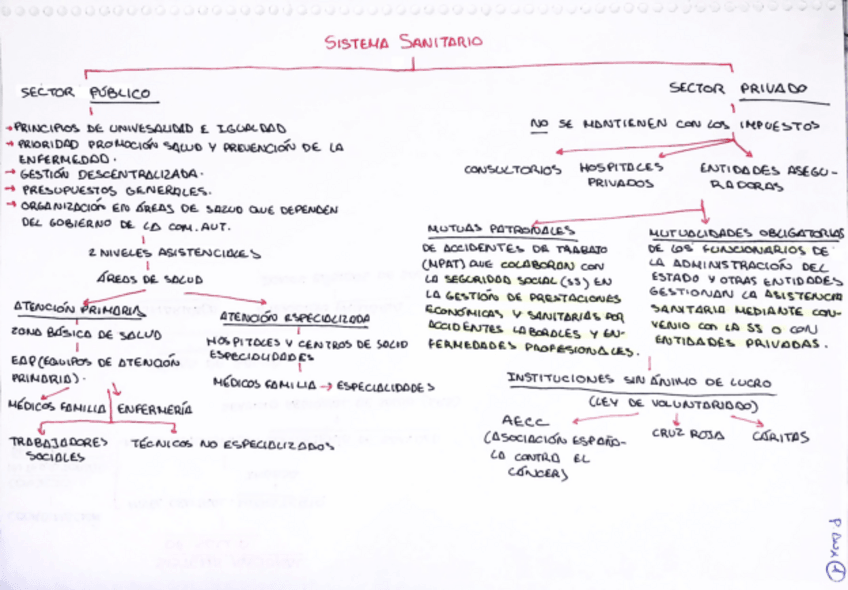 SISTEMA SANITARIO
SECTOR PÚBLICO
→ PRINCIPIOS DE UNIVESALIDAD E IGUALDAD
→ PRIORIDAD PROMOCIÓN SALUD Y PREVENCIÓN DE LA
ENFERMEDAD.
→ GESTIÓN DESCENTRALIZADA.
→ PRESUPUESTOS GENERALES.
→ ORGANIZACIÓN EN ÁREAS DE SALUD QUE DEPENDEN
DEL GOBIERNO DE LA COM. AUT.
2 NIVELES ASISTENCIALES
ÁREAS DE SALUD
ATENCIÓN PRIMARIA
ZONA BÁSICA DE SALUD
EAP (EQUIPOS DE ATENCIÓN
PRIMARIA).
MÉDICOS FAMILIA
ENFERMERÍA
TRABAJADORES
SOCIALES
TÉCNICOS NO ESPECIALIZADOS
ATENCIÓN ESPECIALIZADA
HOSPITALES Y CENTROS DE SALUD
ESPECIALIDADES
MÉDICOS FAMILIA → ESPECIALIDADES
SECTOR PRIVADO
NO SE MANTIENEN CON LOS IMPUESTOS
CONSULTORIOS
HOSPITALES
PRIVADOS
ENTIDADES ASEGU-
RADORAS
MUTUAS PATRONALES
DE ACCIDENTES DE TRABAJO
(MPAT) QUE COLABORAN CON
LA SEGURIDAD SOCIAL (SS) EN
LA GESTIÓN DE PRESTACIONES
ECONÓMICAS Y SANITARIAS POR
ACCIDENTES LABORALES Y EN-
FERMEDADES PROFESIONALES.
MUTUALIDADES OBLIGATORIAS
DE LOS FUNCIONARIOS DE
LA ADMINISTRACIÓN DEL
ESTADO Y OTRAS ENTIDADES
GESTIONAN LA ASISTENCIA
SANITARIA MEDIANTE CON-
VENIO CON LA SS O CON
ENTIDADES PRIVADAS.
INSTITUCIONES SIN ÁNIMO DE LUCRO
(LEY DE VOLUNTARIADO)
AECC
(ASOCIACIÓN ESPAÑO-
LA CONTRA EL
CÁNCER)
CRUZ ROJA
CÁRITAS